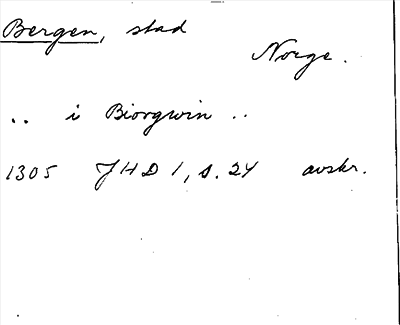 Bergen, stad
Norge.
.. i Biorgwin ..
1305 JHD 1, s. 24 avskr.